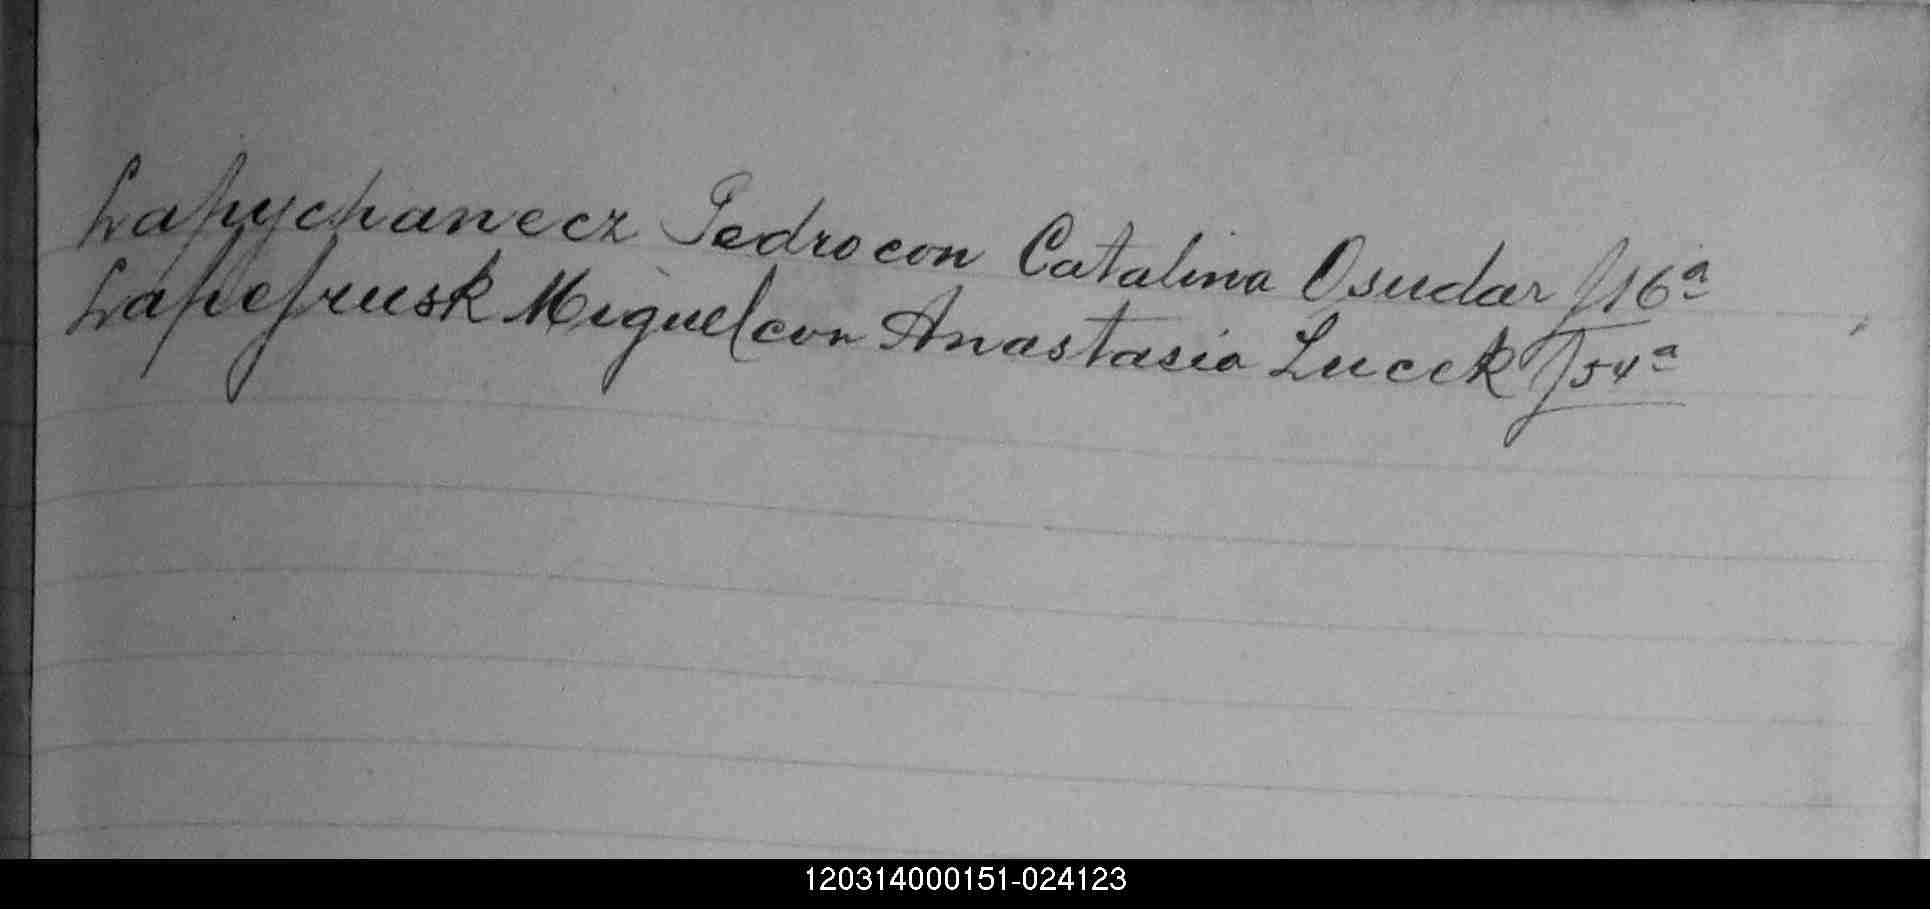 Lapychanecz Pedro con Catalina Osudar f 16ª
Miguel con Anastasia Lucek f 54ª
120314000151-024123